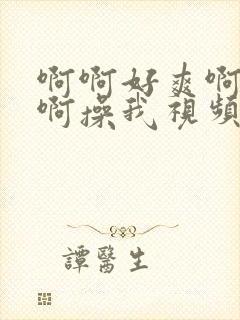 啊啊好爽啊
啊操我視頻
譚醫生